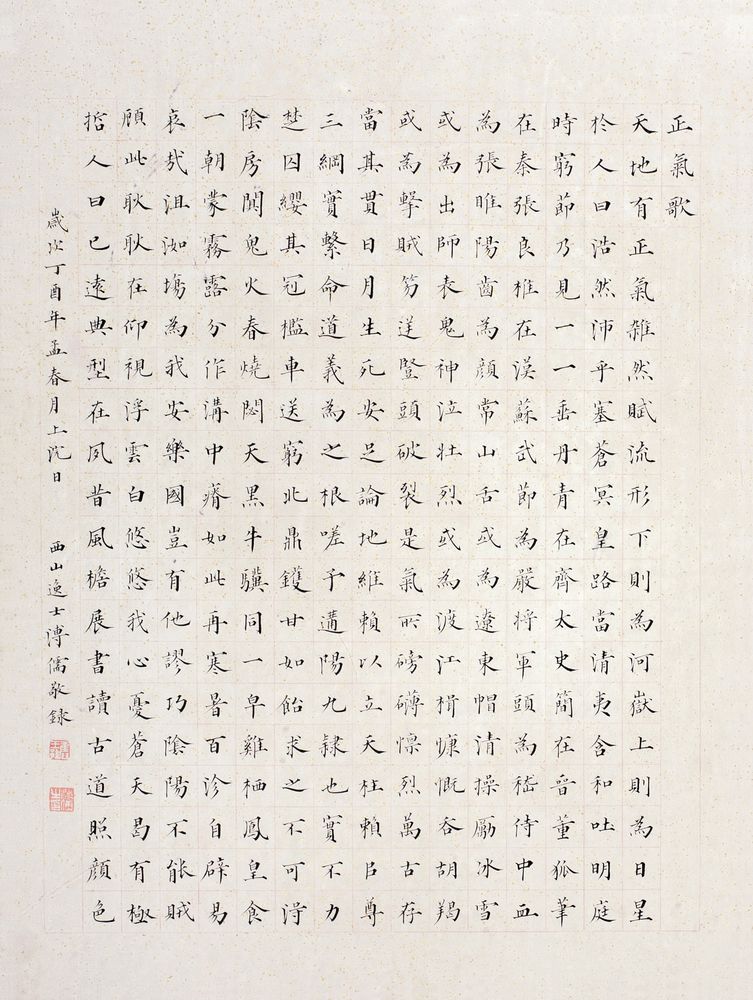 正氣歌
天地有正氣雜然賦流形下則為河嶽上則為日星
於人曰浩然沛乎塞蒼冥皇路當清夷含和吐明庭
時窮節乃見一一垂丹青在齊太史簡在晉董狐筆
在秦張良椎在漢蘇武節為嚴將軍頭為嵇侍中血
為張睢陽齒為顏常山舌或為遼東帽清操勵冰雪
或為出師表鬼神泣壯烈或為渡江楫慷慨吞胡羯
或為擊賊笏逆豎頭破裂是氣所磅礴懍烈萬古存
當其貫日月生死安足論地維賴以立天柱賴以尊
三綱實繫命道義為之根嗟予遘陽九隸也實不力
楚囚纓其冠檻車送窮北鼎鑊甘如飴求之不可得
陰房闃鬼火春燒閟天黑牛驥同一皁雞栖鳳皇食
一朝蒙霧露分作溝中瘠如此再寒暑百沴自辟易
哀哉沮洳場為我安樂國豈有他謬巧陰陽不能賊
顧此耿耿在仰視浮雲白悠悠我心憂蒼天曷有極
哲人日已遠典型在夙昔風檐展書讀古道照顏色
歲次丁酉年孟春月上浣日 西山逸士溥儒敬錄